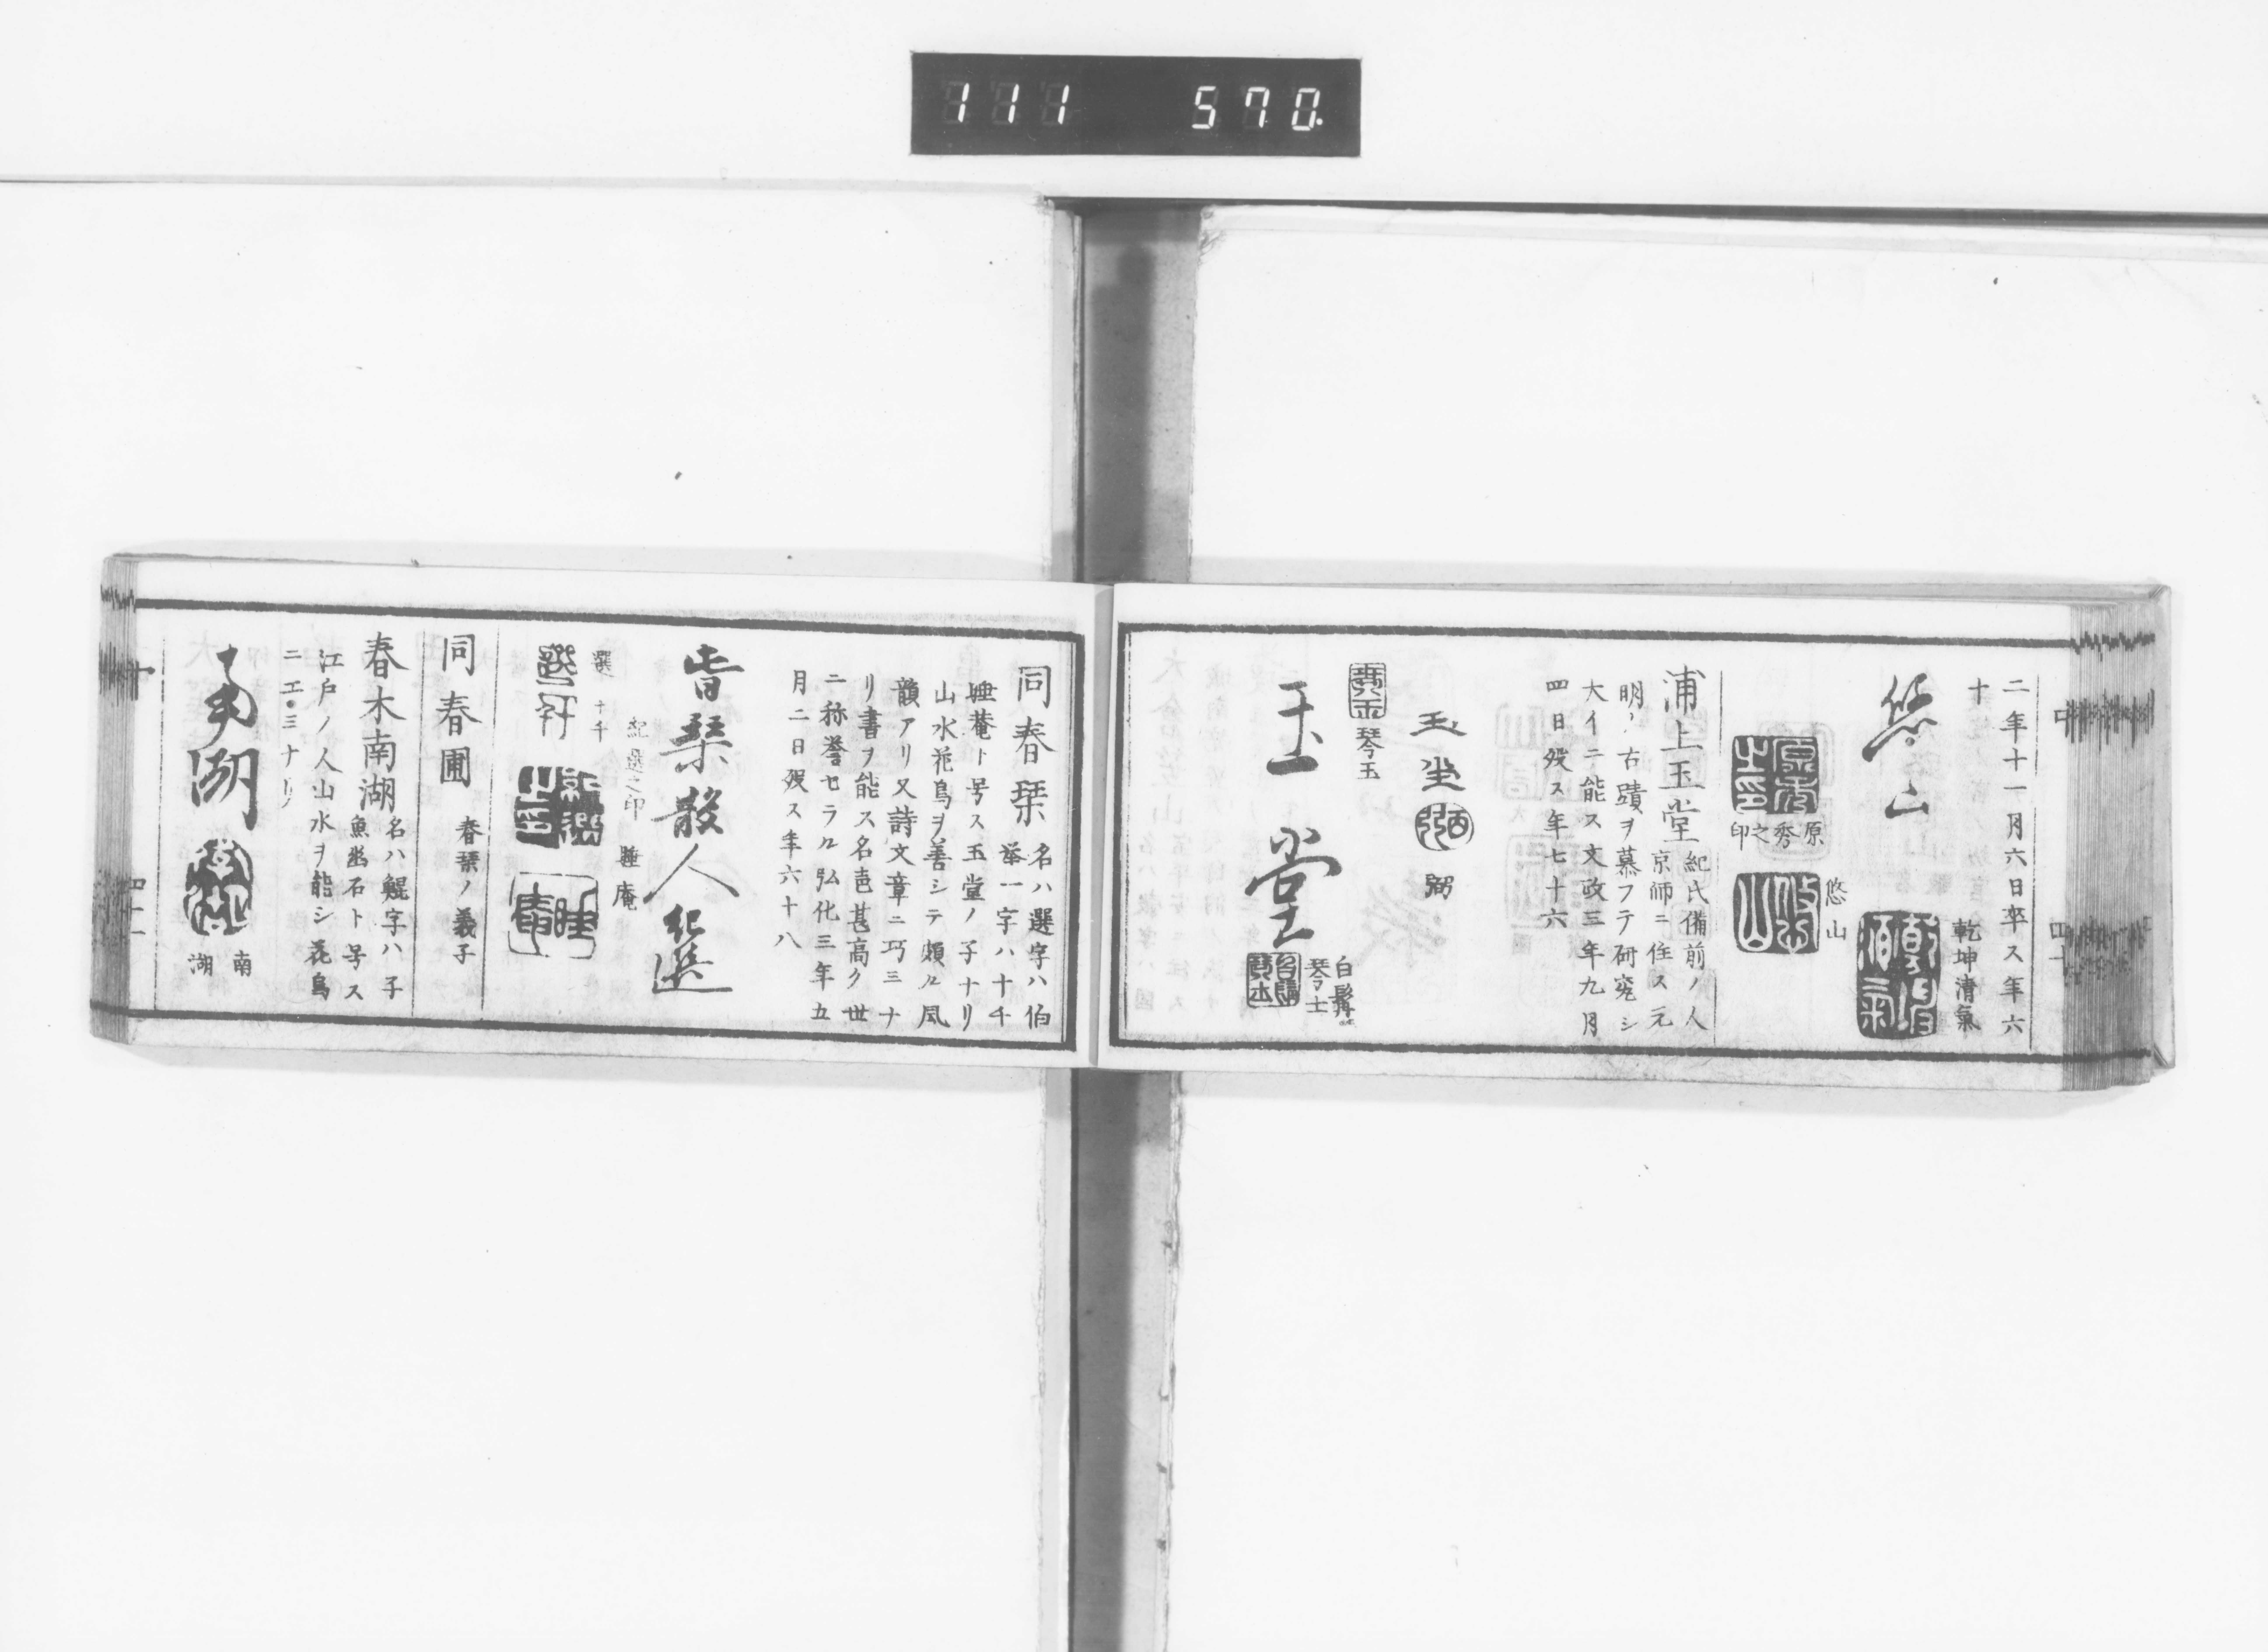 111 570
二年十一月六日卒ス年六
十
乾坤清氣
悠山
悠山
原秀之印
浦上玉堂
紀氏備前ノ人
京師ニ住ス元
明ノ古蹟ヲ慕フテ研究シ
大イニ能ス文政三年九月
四日歿ス年七十六
玉堂
弼
琴玉
玉堂
白髯
琴士
同春琹
名ハ選字ハ伯
挙一字ハ十千
睡菴ト号ス玉堂ノ子ナリ
山水花鳥ヲ善シテ頗ル風
韻アリ又詩文章ニ巧ミナ
リ書ヲ能ス名声甚高ク世
ニ称誉セラル弘化三年五
月二日歿ス年六十八
春琹散人紀選
紀選之印
睡庵
選
十千
同春圃
春琹ノ義子
春木南湖
名ハ鯤字ハ子
魚幽石ト号ス
江戸ノ人山水ヲ能シ花鳥
ニ工ミナリ
南湖
南湖
四十一